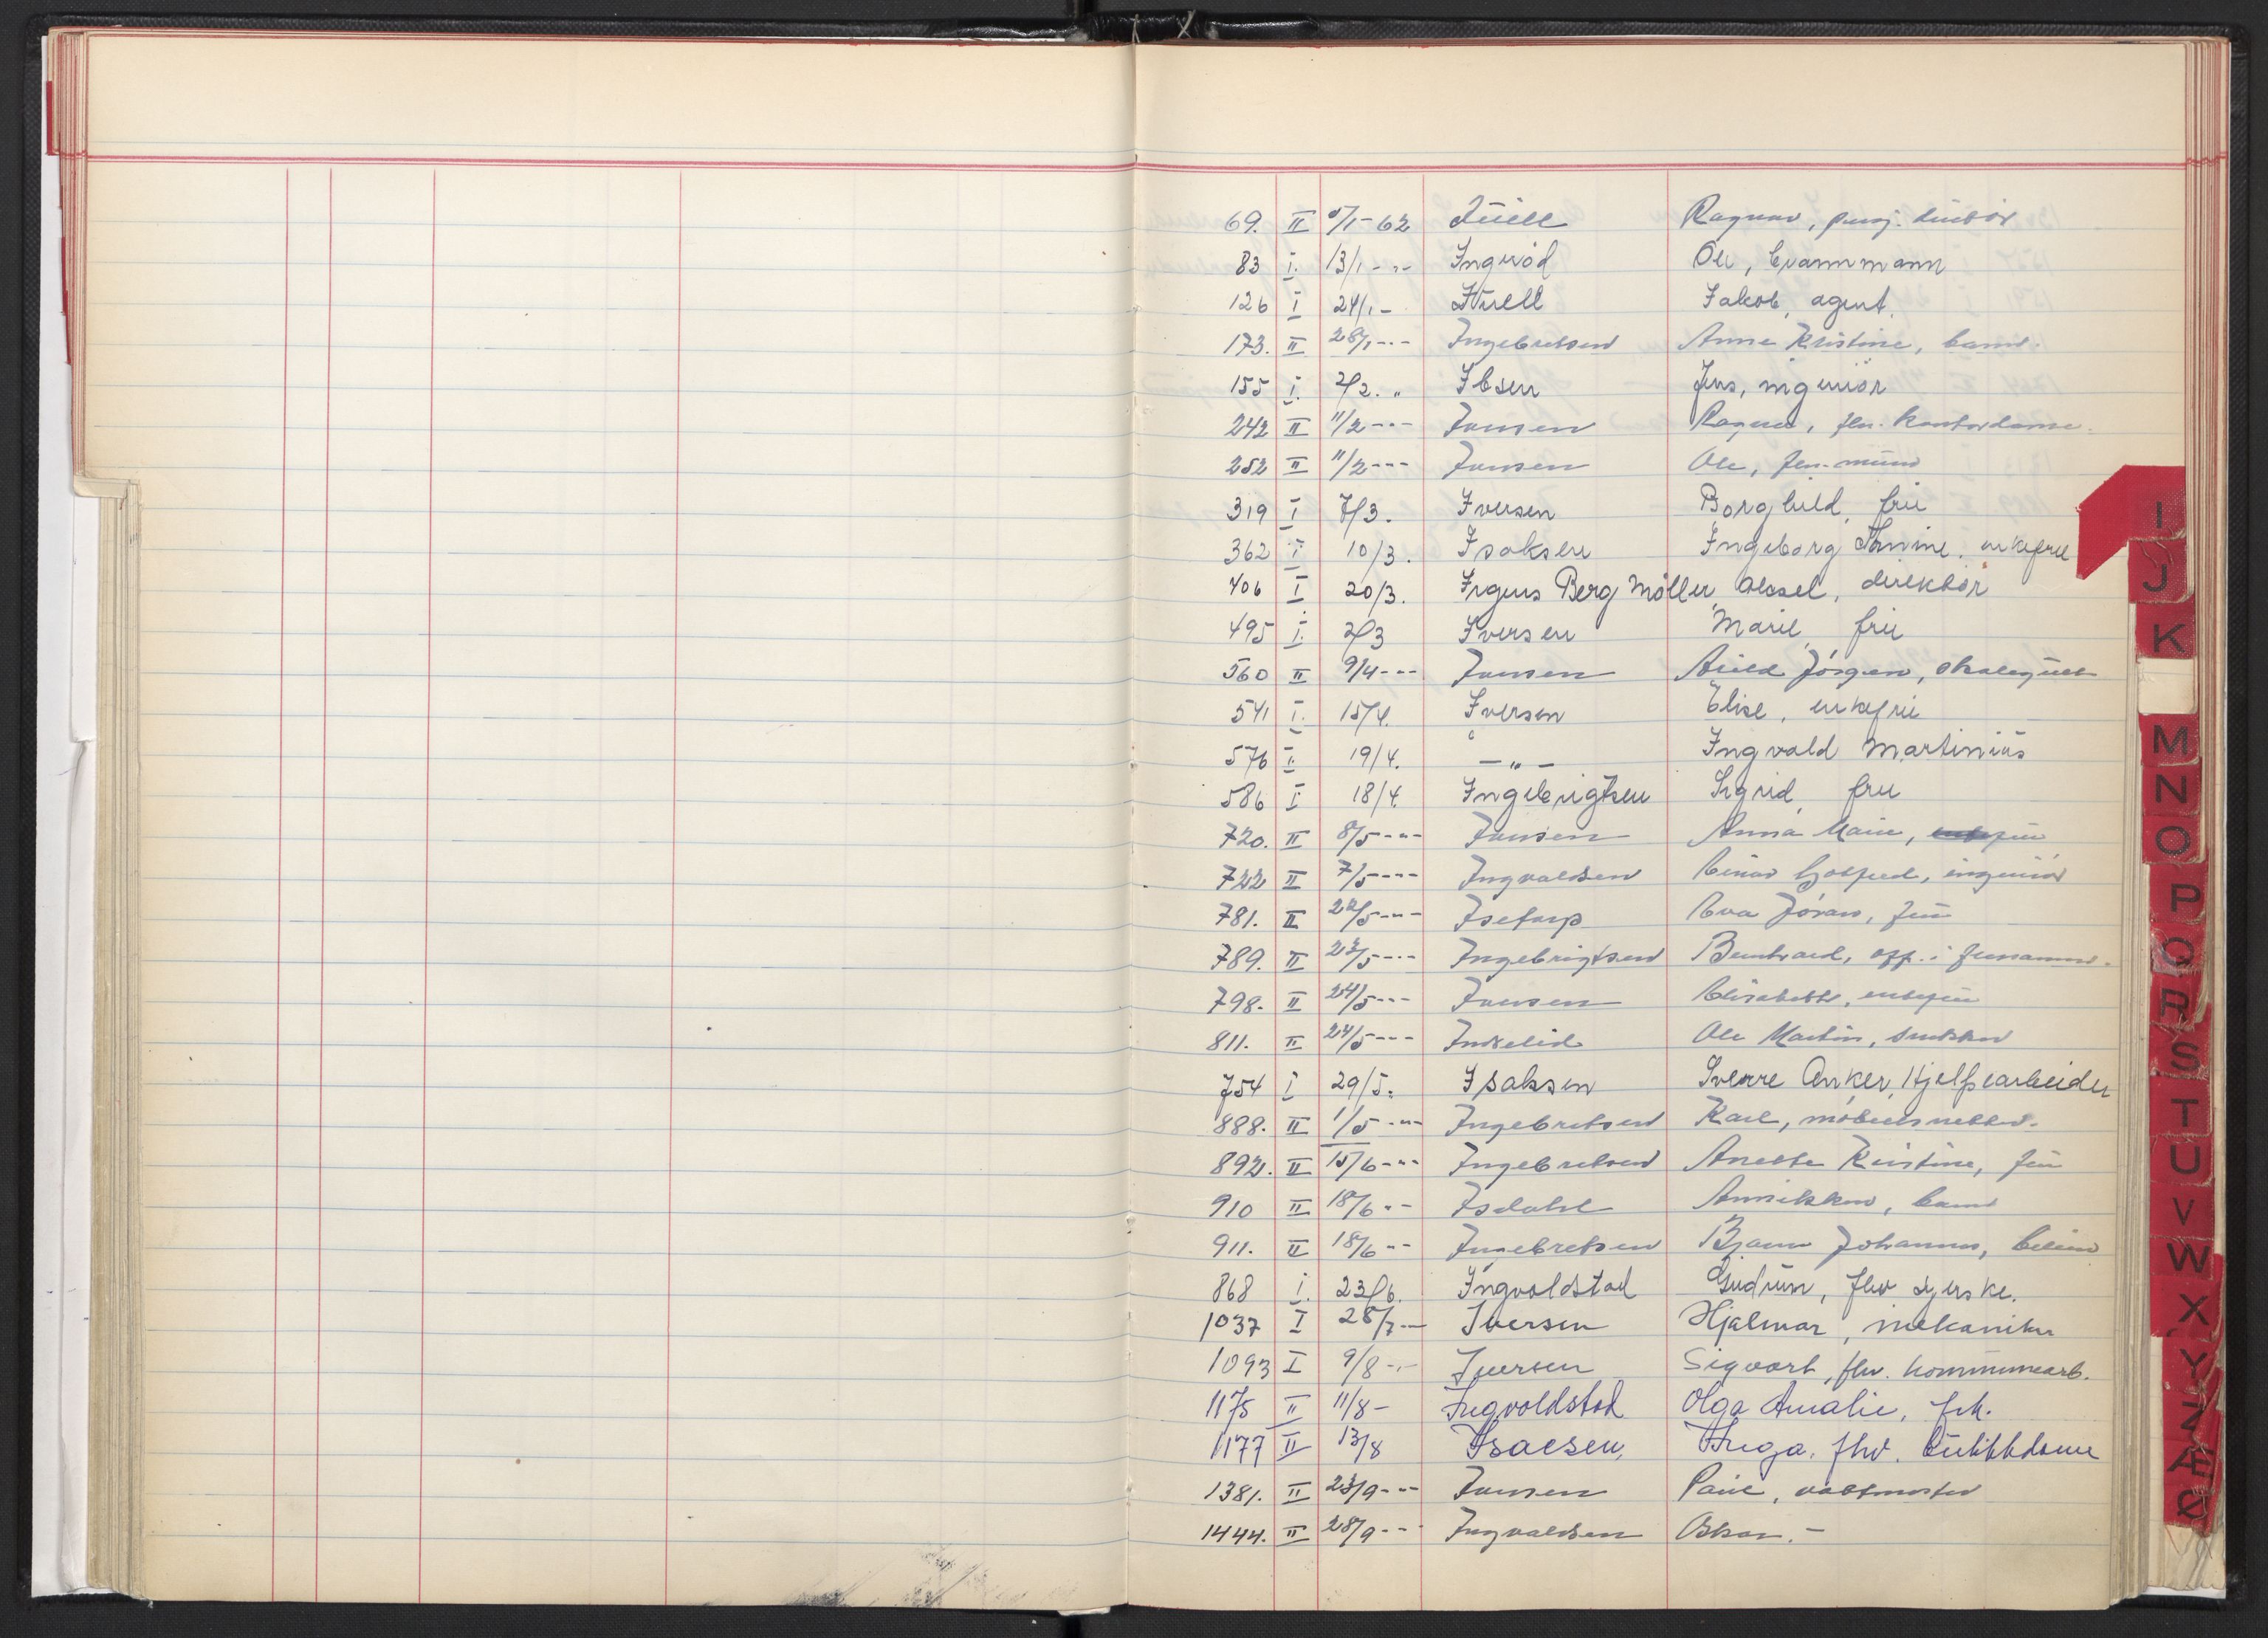 69. II 5/1-62 Juell Ragnar, pensj. direktør
83 I. 13/1 - " - Ingerød Ole, Evarmmann
126 I 24/1 - Juell Jakob, agent.
173. II 28/1 - " - Ingebretsen Anne Kristine, barn.
155 I. 2/2. " Ibsen Jens, ingeniør
242 II 11/2 - " - Iversen Ragna, fhv. kontordame.
252 II 11/2 - " - Iversen Ole, fhv. murer
319 I 7/3. Iversen Borghild, fru
362 I 10/3. Isaksen Ingeborg Janine, enkefru
406 I 20/3. Irgens Berg Møller, Aksel, direktør
495 I. 2/3 Iversen Marie, fru
560 II 9/4 - " - Iversen Arild Jørgen, skolegutt
541 I. 15/4. Iversen Elise, enkefru
576 I. 19/4. - " - Ingvald Martinius
586 I 18/4. Ingebrigtsen Sigrid, fru
720. II 8/5 - " - Iversen Anna Marie, fru
722 II 7/5 - " - Ingvaldsen Einar, ingeniør
781. II 22/5 - " - Isefarp Eva Jóran, fru
789. II 23/5 - " - Ingebrigtsen Bernhard, opp. i
798. II 24/5 - " - Iversen Elisabeth, enkefru
811. II 24/5 - " - Indrelid Ole Martin, snekker
754 I 29/5. Isaksen Sverre Anker, Hjelpearbeider
888. II 1/5 - " - Ingebretsen Karl, møbelsnekker.
892. II 15/6 - " - Ingebretsen Anette Kristine, fru
910 II 18/6 - " - Isdahl Annikken, barn
911. II 18/6 - " - Ingebretsen Bjarne Johannes,
868 I. 23/6. Ingvoldstad Gudrun, fhv syerske.
1037 I 28/7 - Iversen Hjalmar, mekaniker
1093 I 9/8 - " - Iversen Sigvart, fhv. kommunearb.
1175 II 11/8 - Ingvoldstad Olga Amalie, frk.
1177 II 13/8 Isacsen, Inga. fhv. butikkdame
1381. II 23/9 - " - Iversen Paul, vaktmester
1444. II 28/9 - " - Ingvaldsen Oskar. -
I
J
K
M
N
O
P
Q
R
S
T
U
V
W
X
Y
Z
Æ
Ø